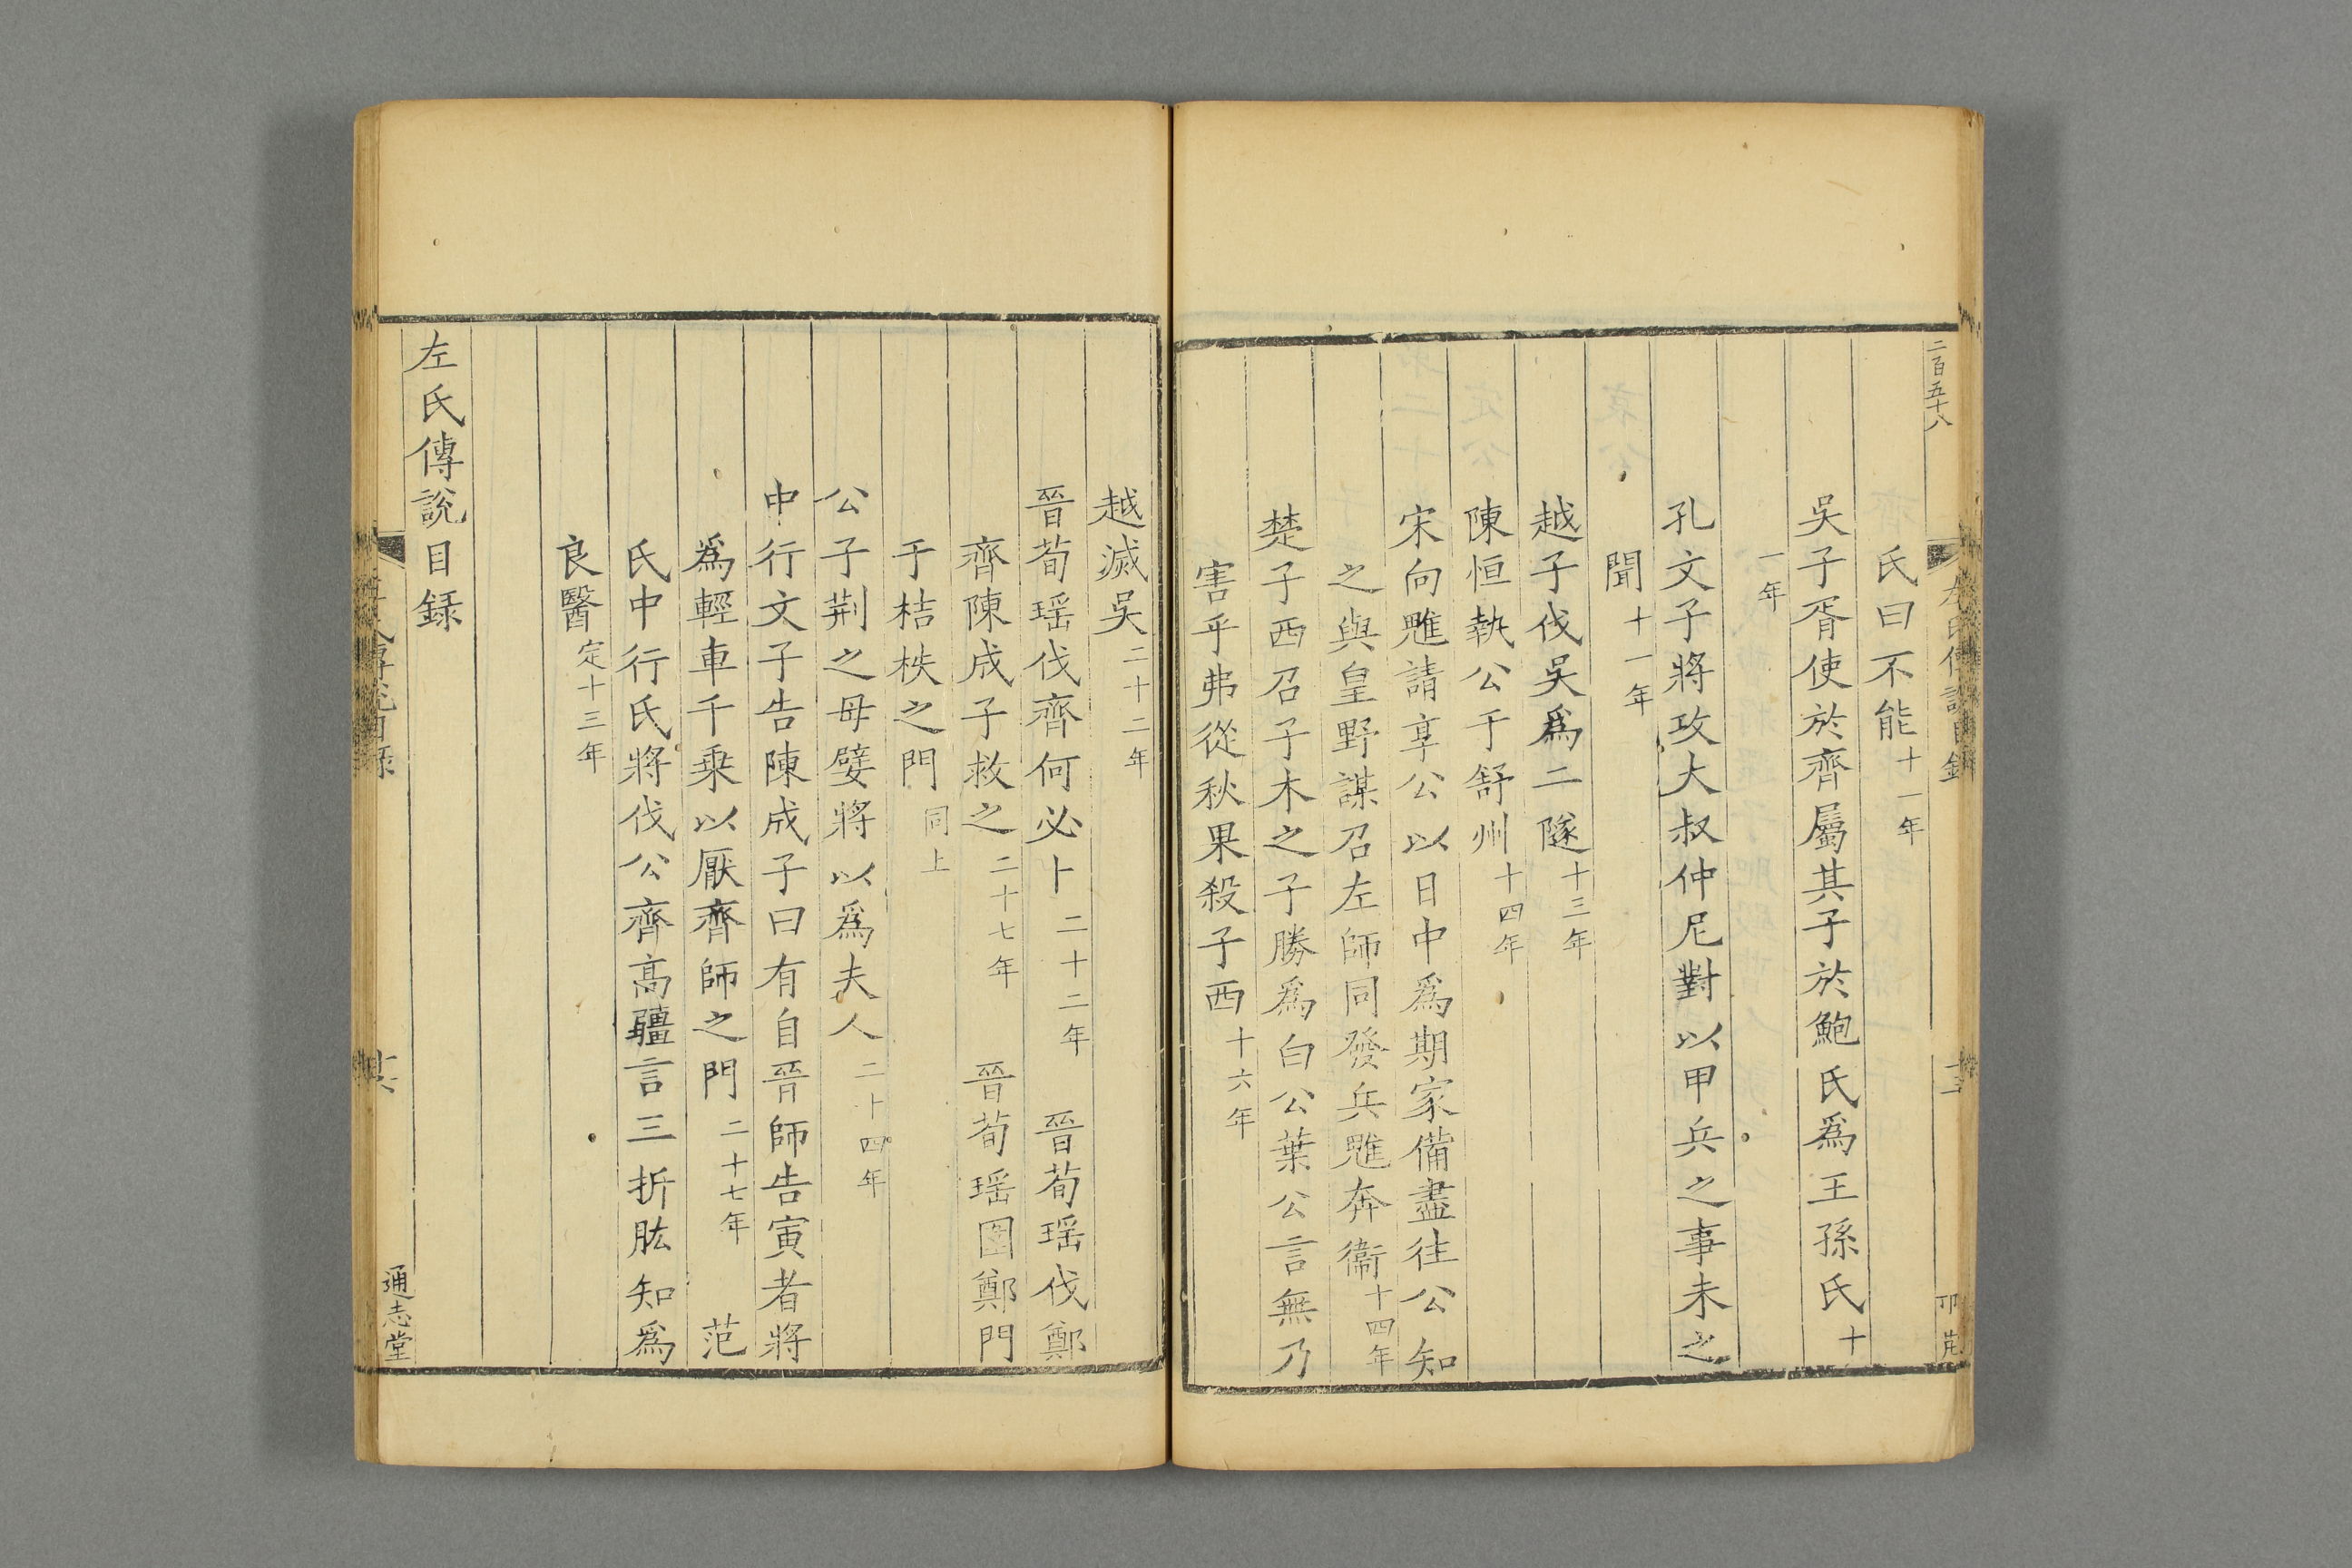 二百五十八
氏曰不能十一年
吳子胥使於齊屬其子於鮑氏爲王孫氏十
一年
孔文子將攻大叔仲尼對以甲兵之事未之
聞十一年
越子伐吳爲二隧十三年
陳恒執公于舒州十四年
宋向魋請享公以日中爲期家備盡往公知
之與皇野謀召左師同發兵魋奔衞十四年
楚子西召子木之子勝爲白公葉公言無乃
害乎弗從秋果殺子西十六年
越滅吳二十二年
晉荀瑶伐齊何必卜二十二年 晉荀瑶伐鄭
齊陳成子救之二十七年 晉荀瑶圍鄭門
于桔柣之門同上
公子荆之母嬖將以爲夫人二十四年
中行文子告陳成子曰有自晉師告寅者將
爲輕車千乗以厭齊師之門二十七年 范
氏中行氏將伐公齊高疆言三折肱知爲
良醫定十三年
左氏傳說目録
通志堂